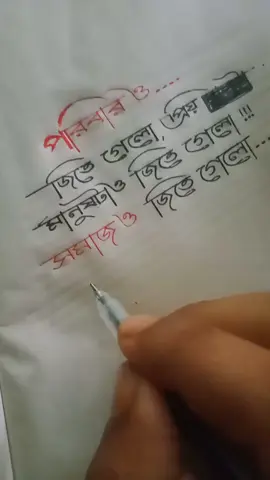 পরিবার ও ....
জিতে গেলো, প্রিয়
মানুষটাও জিতে গেলো !!!
সমাজও জিতে গেলো ...